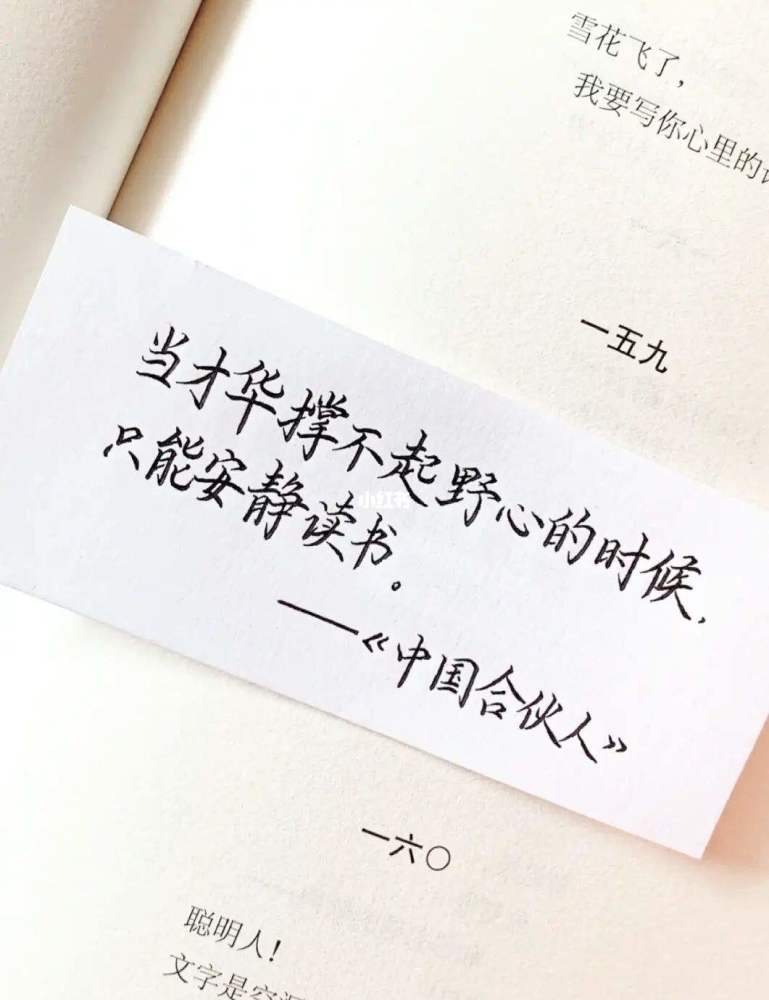 雪花飞了，
我要写你心里的
一五九
当才华撑不起野心的时候，
只能安静读书。
——《中国合伙人》
小红书
一六〇
聪明人！
文字是空